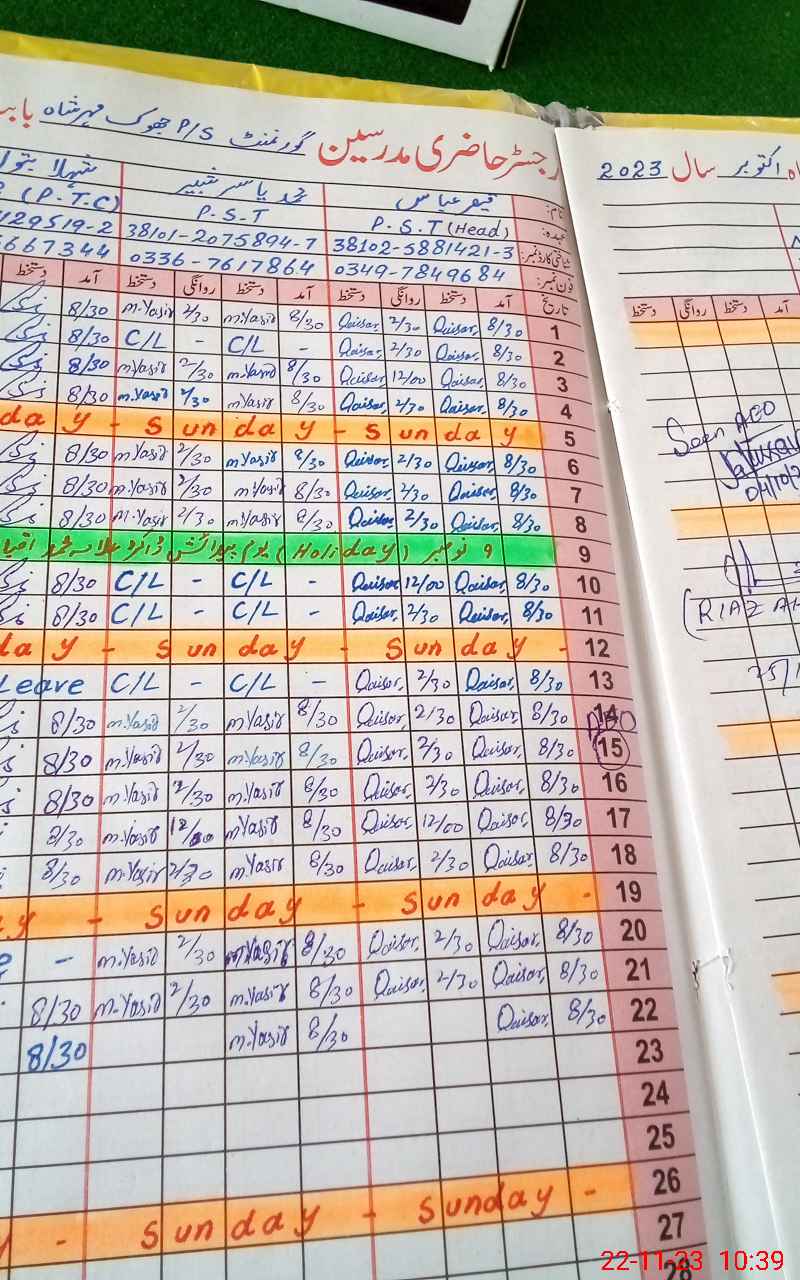 رجسٹر حاضری مدرسین گورنمنٹ P/S جھوک مہر شاہ
نام: قیصر عباس محمد یاسر شبیر شہلا بتول
عہدہ: P.S.T (Head) P.S.T (P.T.C)
شناختی کارڈ نمبر: 38102-5881421-3 38101-2075894-7 129519-2
فون نمبر: 0349-7849684 0336-7617864 667344
تاریخ آمد دستخط روانگی دستخط آمد دستخط روانگی دستخط آمد دستخط
1 8/30 Qaisar, 2/30 Qaisar, 8/30 m.Yasir 2/30 m.Yasir 8/30
2 8/30 Qaisar, 2/30 Qaisar, - C/L - C/L 8/30
3 8/30 Qaisar, 12/00 Qaisar, 8/30 m.Yasir 2/30 m.Yasir 8/30
4 8/30 Qaisar, 2/30 Qaisar, 8/30 m.Yasir 2/30 m.Yasir 8/30
5 day - Sunday - Sunday
6 8/30 Qaisar, 2/30 Qaisar, 8/30 m.Yasir 2/30 m.Yasir 8/30
7 8/30 Qaisar, 2/30 Qaisar, 8/30 m.Yasir 2/30 m.Yasir 8/30
8 8/30 Qaisar, 2/30 Qaisar, 8/30 m.Yasir 2/30 m.Yasir 8/30
9 ۹ نومبر (Holiday) یوم پیدائش ڈاکٹر علامہ محمد اقبا
10 8/30 Qaisar, 12/00 Qaisar - C/L - C/L 8/30
11 8/30 Qaisar, 2/30 Qaisar, - C/L - C/L 8/30
12 day - Sunday - Sunday -
13 8/30 Qaisar, 2/30 Qaisar, - C/L - C/L Leave
14 8/30 Qaisar, 2/30 Qaisar, 8/30 m.Yasir 2/30 m.Yasir 8/30
15 8/30 Qaisar, 2/30 Qaisar, 8/30 m.Yasir 2/30 m.Yasir 8/30
16 8/30 Qaisar, 2/30 Qaisar, 8/30 m.Yasir 2/30 m.Yasir 8/30
17 8/30 Qaisar, 12/00 Qaisar, 8/30 m.Yasir 12/00 m.Yasir 8/30
18 8/30 Qaisar, 2/30 Qaisar, 8/30 m.Yasir 2/30 m.Yasir 8/30
19 y - Sunday - Sunday -
20 8/30 Qaisar, 2/30 Qaisar, 8/30 m.Yasir 2/30 m.Yasir -
21 8/30 Qaisar, 2/30 Qaisar, 8/30 m.Yasir 2/30 m.Yasir 8/30
22 8/30 Qaisar, 8/30 m.Yasir 8/30
23
24
25
26 y - Sunday - Sunday -
27
28
اکتوبر سال 2023
آمد دستخط روانگی دستخط
Seen AEO
04/10/2
(RIAZ A
25/1
22-11-23 10:39